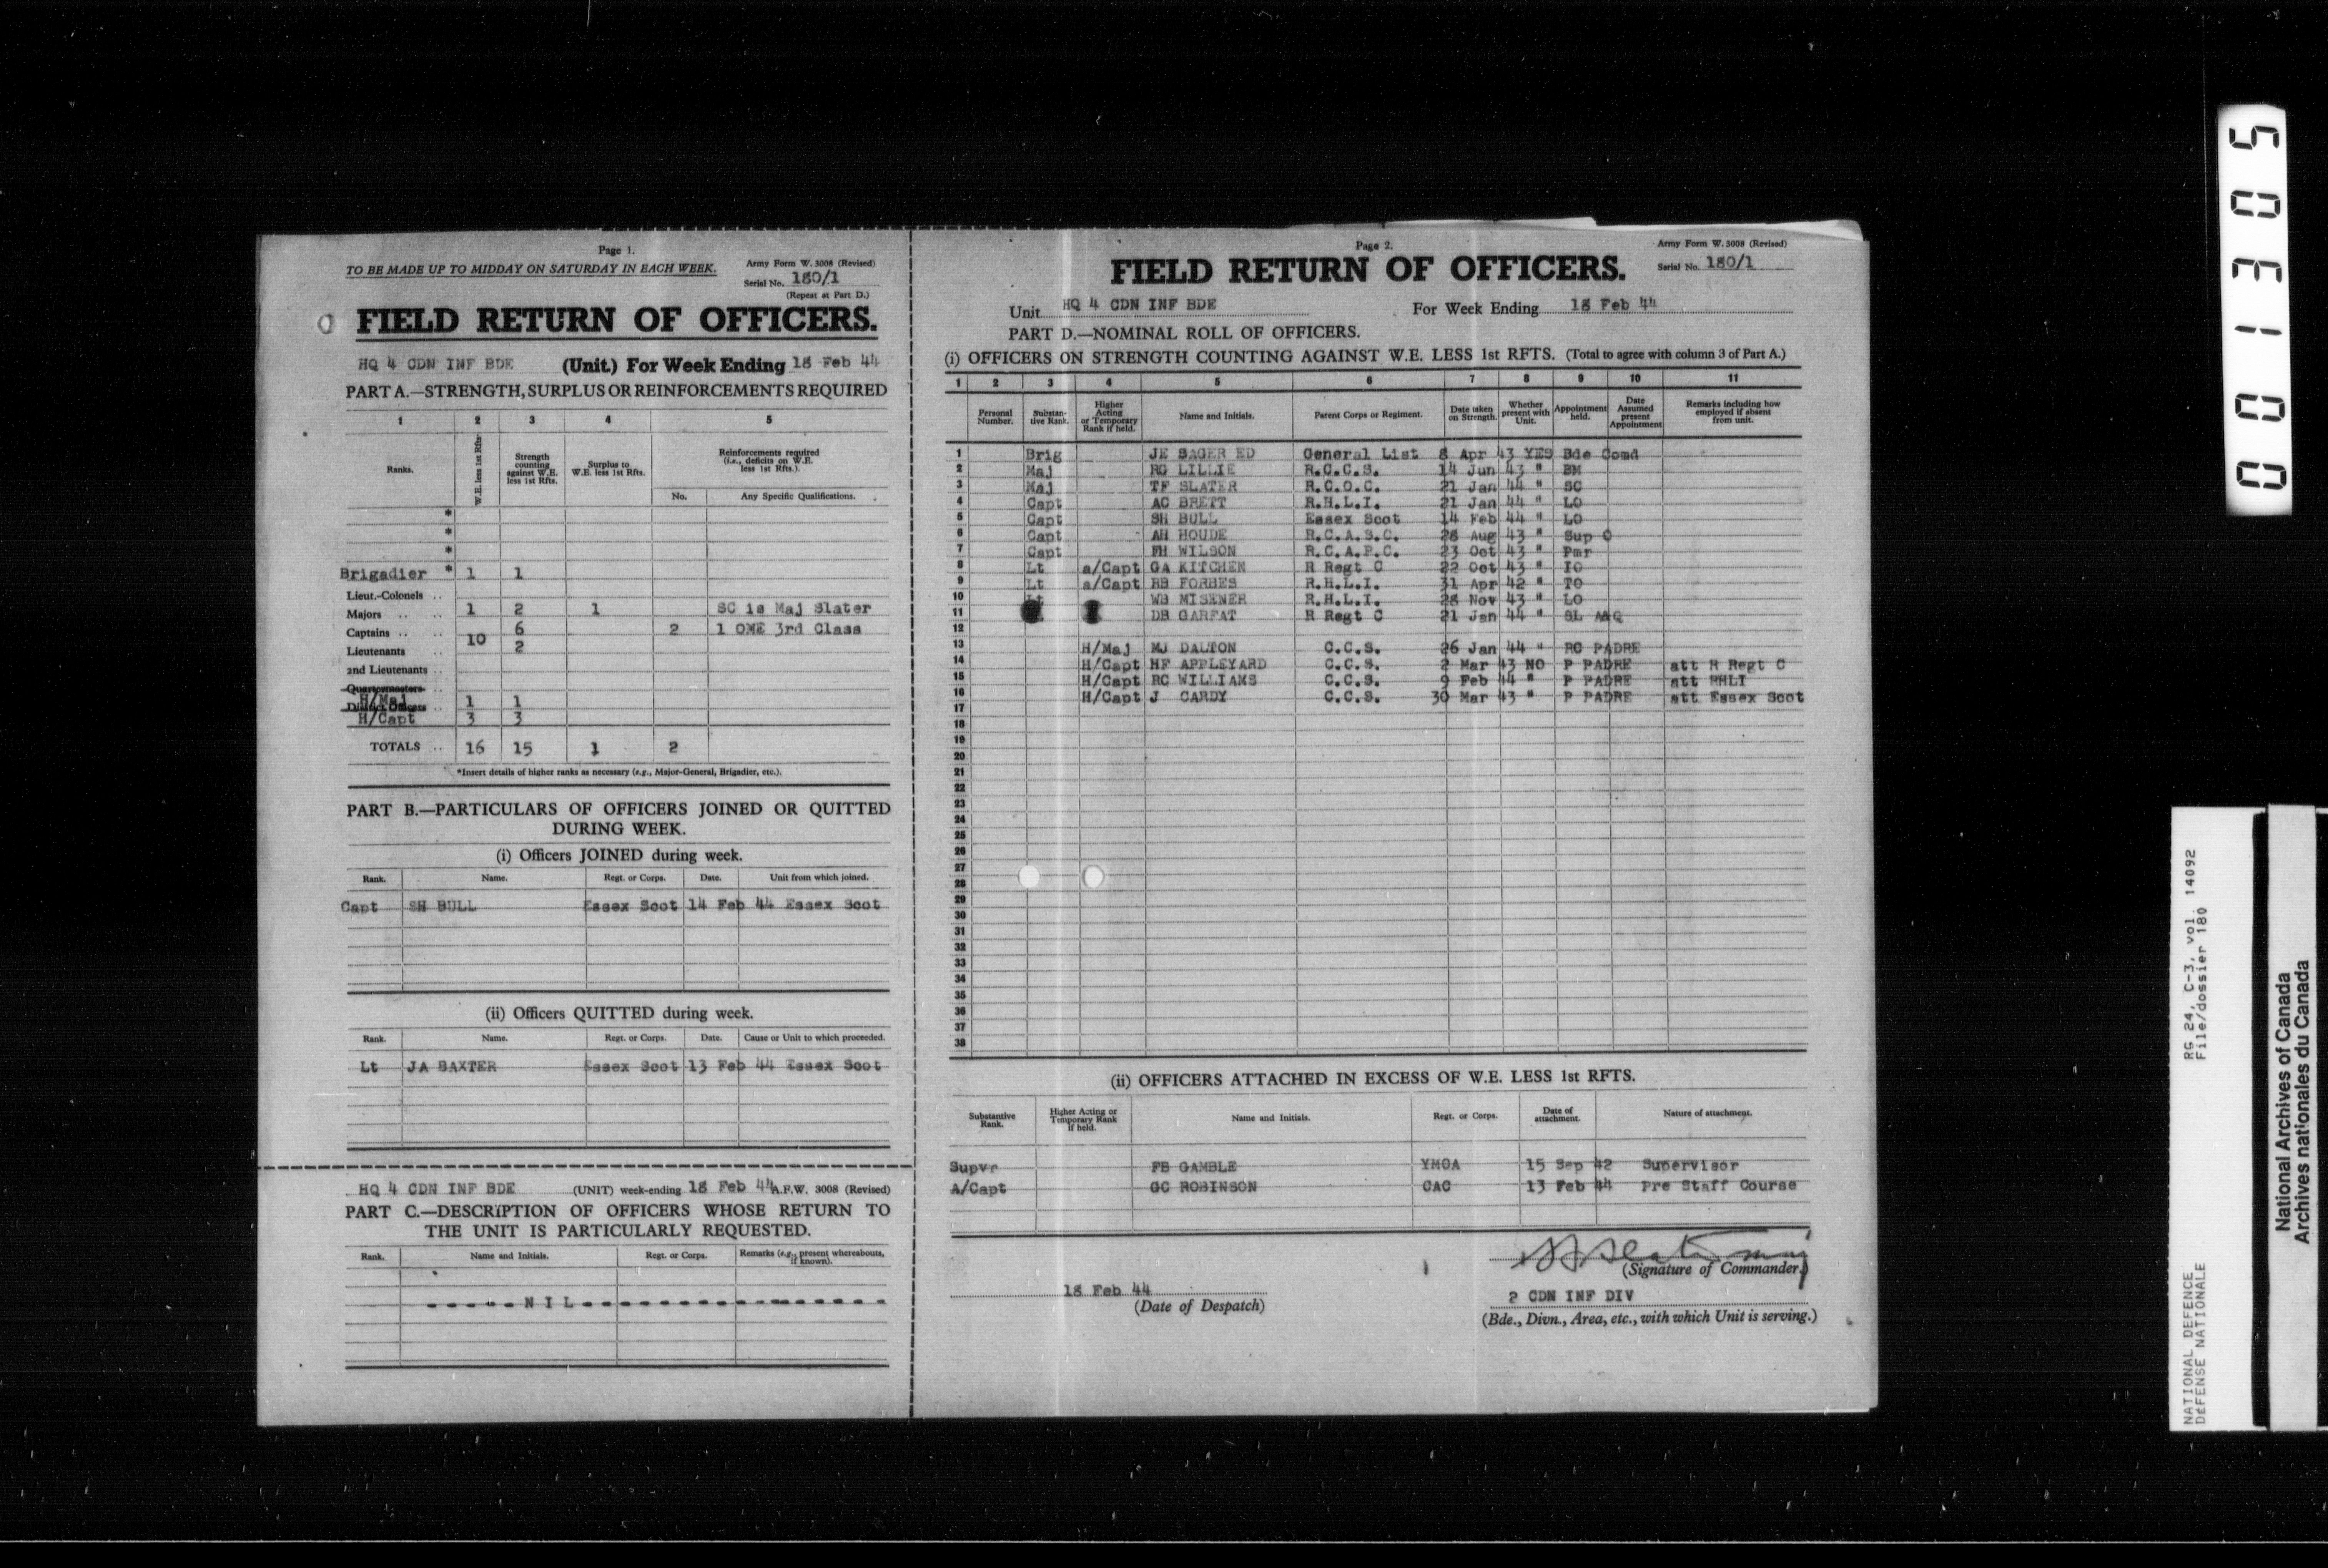 Page 1.
TO BE MADE UP TO MIDDAY ON SATURDAY IN EACH WEEK.
Army Form W. 3008 (Revised)
Serial No. 180/1
(Repeat at Part D.)
FIELD RETURN OF OFFICERS.
HQ 4 CDN INF BDE (Unit.) For Week Ending 18 Feb 44
PART A.—STRENGTH, SURPLUS OR REINFORCEMENTS REQUIRED
1 2 3 4 5
Ranks. W.E. less 1st Rfts. Strength counting against W.E. less 1st Rfts. Surplus to W.E. less 1st Rfts. Reinforcements required (i.e., deficits on W.E. less 1st Rfts.).
No. Any Specific Qualifications.
*
*
*
Brigadier * 1 1
Lieut.-Colonels ..
Majors .. .. 1 2 1 SC is Maj Slater
Captains .. .. 10 6 2 1 OME 3rd Class
Lieutenants .. 2
2nd Lieutenants ..
Quartermasters
H/Maj 1 1
H/Capt 3 3
TOTALS .. 16 15 1 2
*Insert details of higher ranks as necessary (e.g., Major-General, Brigadier, etc.).
PART B.—PARTICULARS OF OFFICERS JOINED OR QUITTED
DURING WEEK.
(i) Officers JOINED during week.
Rank. Name. Regt. or Corps. Date. Unit from which joined.
Capt SH BULL Essex Scot 14 Feb 44 Essex Scot
(ii) Officers QUITTED during week.
Rank. Name. Regt. or Corps. Date. Cause or Unit to which proceeded.
Lt JA BAXTER Essex Scot 13 Feb 44 Essex Scot
HQ 4 CDN INF BDE (UNIT) week-ending 18 Feb 44 A.F.W. 3008 (Revised)
PART C.—DESCRIPTION OF OFFICERS WHOSE RETURN TO
THE UNIT IS PARTICULARLY REQUESTED.
Rank. Name and Initials. Regt. or Corps. Remarks (e.g., present whereabouts, if known).
- - - - - - N I L - - - - - - - - - - - - - - - - - -
Page 2.
Army Form W. 3008 (Revised)
Serial No. 180/1
FIELD RETURN OF OFFICERS.
Unit HQ 4 CDN INF BDE For Week Ending 18 Feb 44
PART D.—NOMINAL ROLL OF OFFICERS.
(i) OFFICERS ON STRENGTH COUNTING AGAINST W.E. LESS 1st RFTS. (Total to agree with column 3 of Part A.)
1 2 3 4 5 6 7 8 9 10 11
Personal Number. Substantive Rank. Higher Acting or Temporary Rank if held. Name and Initials. Parent Corps or Regiment. Date taken on Strength. Whether present with Unit. Appointment held. Date Assumed present Appointment Remarks including how employed if absent from unit.
1 Brig JE SAGER ED General List 8 Apr 43 YES Bde Comd
2 Maj RG LILLIE R.C.C.S. 14 Jun 43 " BM
3 Maj TF SLATER R.C.O.C. 21 Jan 44 " SC
4 Capt AC BRETT R.H.L.I. 21 Jan 44 " LO
5 Capt SH BULL Essex Scot 14 Feb 44 " LO
6 Capt AH HOUDE R.C.A.S.C. 28 Aug 43 " Sup O
7 Capt FH WILSON R.C.A.P.C. 23 Oct 43 " Pmr
8 Lt a/Capt GA KITCHEN R Regt C 22 Oct 43 " IO
9 Lt a/Capt RB FORBES R.H.L.I. 31 Apr 42 " TO
10 Lt WB MISENER R.H.L.I. 28 Nov 43 " LO
11 DB GARFAT R Regt C 21 Jan 44 " SL A&Q
12
13 H/Maj MJ DALTON C.C.S. 26 Jan 44 " RC PADRE
14 H/Capt HF APPLEYARD C.C.S. 2 Mar 43 NO P PADRE att R Regt C
15 H/Capt RC WILLIAMS C.C.S. 9 Feb 44 " P PADRE att RHLI
16 H/Capt J CARDY C.C.S. 30 Mar 43 " P PADRE att Essex Scot
17
18
19
20
21
22
23
24
25
26
27
28
29
30
31
32
33
34
35
36
37
38
(ii) OFFICERS ATTACHED IN EXCESS OF W.E. LESS 1st RFTS.
Substantive Rank. Higher Acting or Temporary Rank if held. Name and Initials. Regt. or Corps. Date of attachment. Nature of attachment.
Supvr FB GAMBLE YMCA 15 Sep 42 Supervisor
A/Capt GC ROBINSON CAC 13 Feb 44 Pre Staff Course
(Signature of Commander)
18 Feb 44
(Date of Despatch)
2 CDN INF DIV
(Bde., Divn., Area, etc., with which Unit is serving.)
001305
NATIONAL DEFENCE RG 24, C-3, vol. 14092
DEFENSE NATIONALE File/dossier 180
National Archives of Canada
Archives nationales du Canada